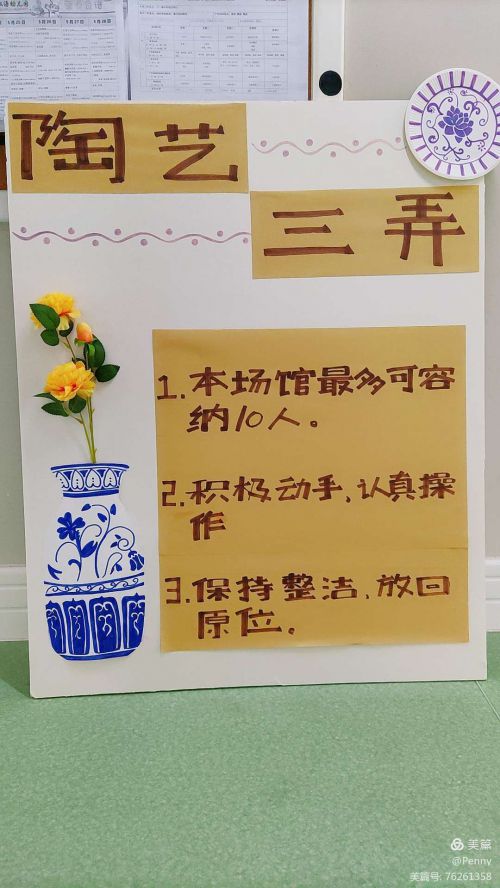 陶艺
三弄
1.本场馆最多可容
纳10人。
2.积极动手、认真操
作
3.保持整洁、放回
原位。
美篇
@Penny
美篇号: 76261358